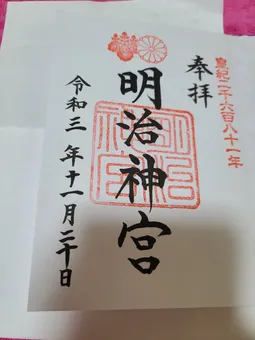 皇紀二千六百八十一年
奉拝
明治神宮
令和三年十一月二十日